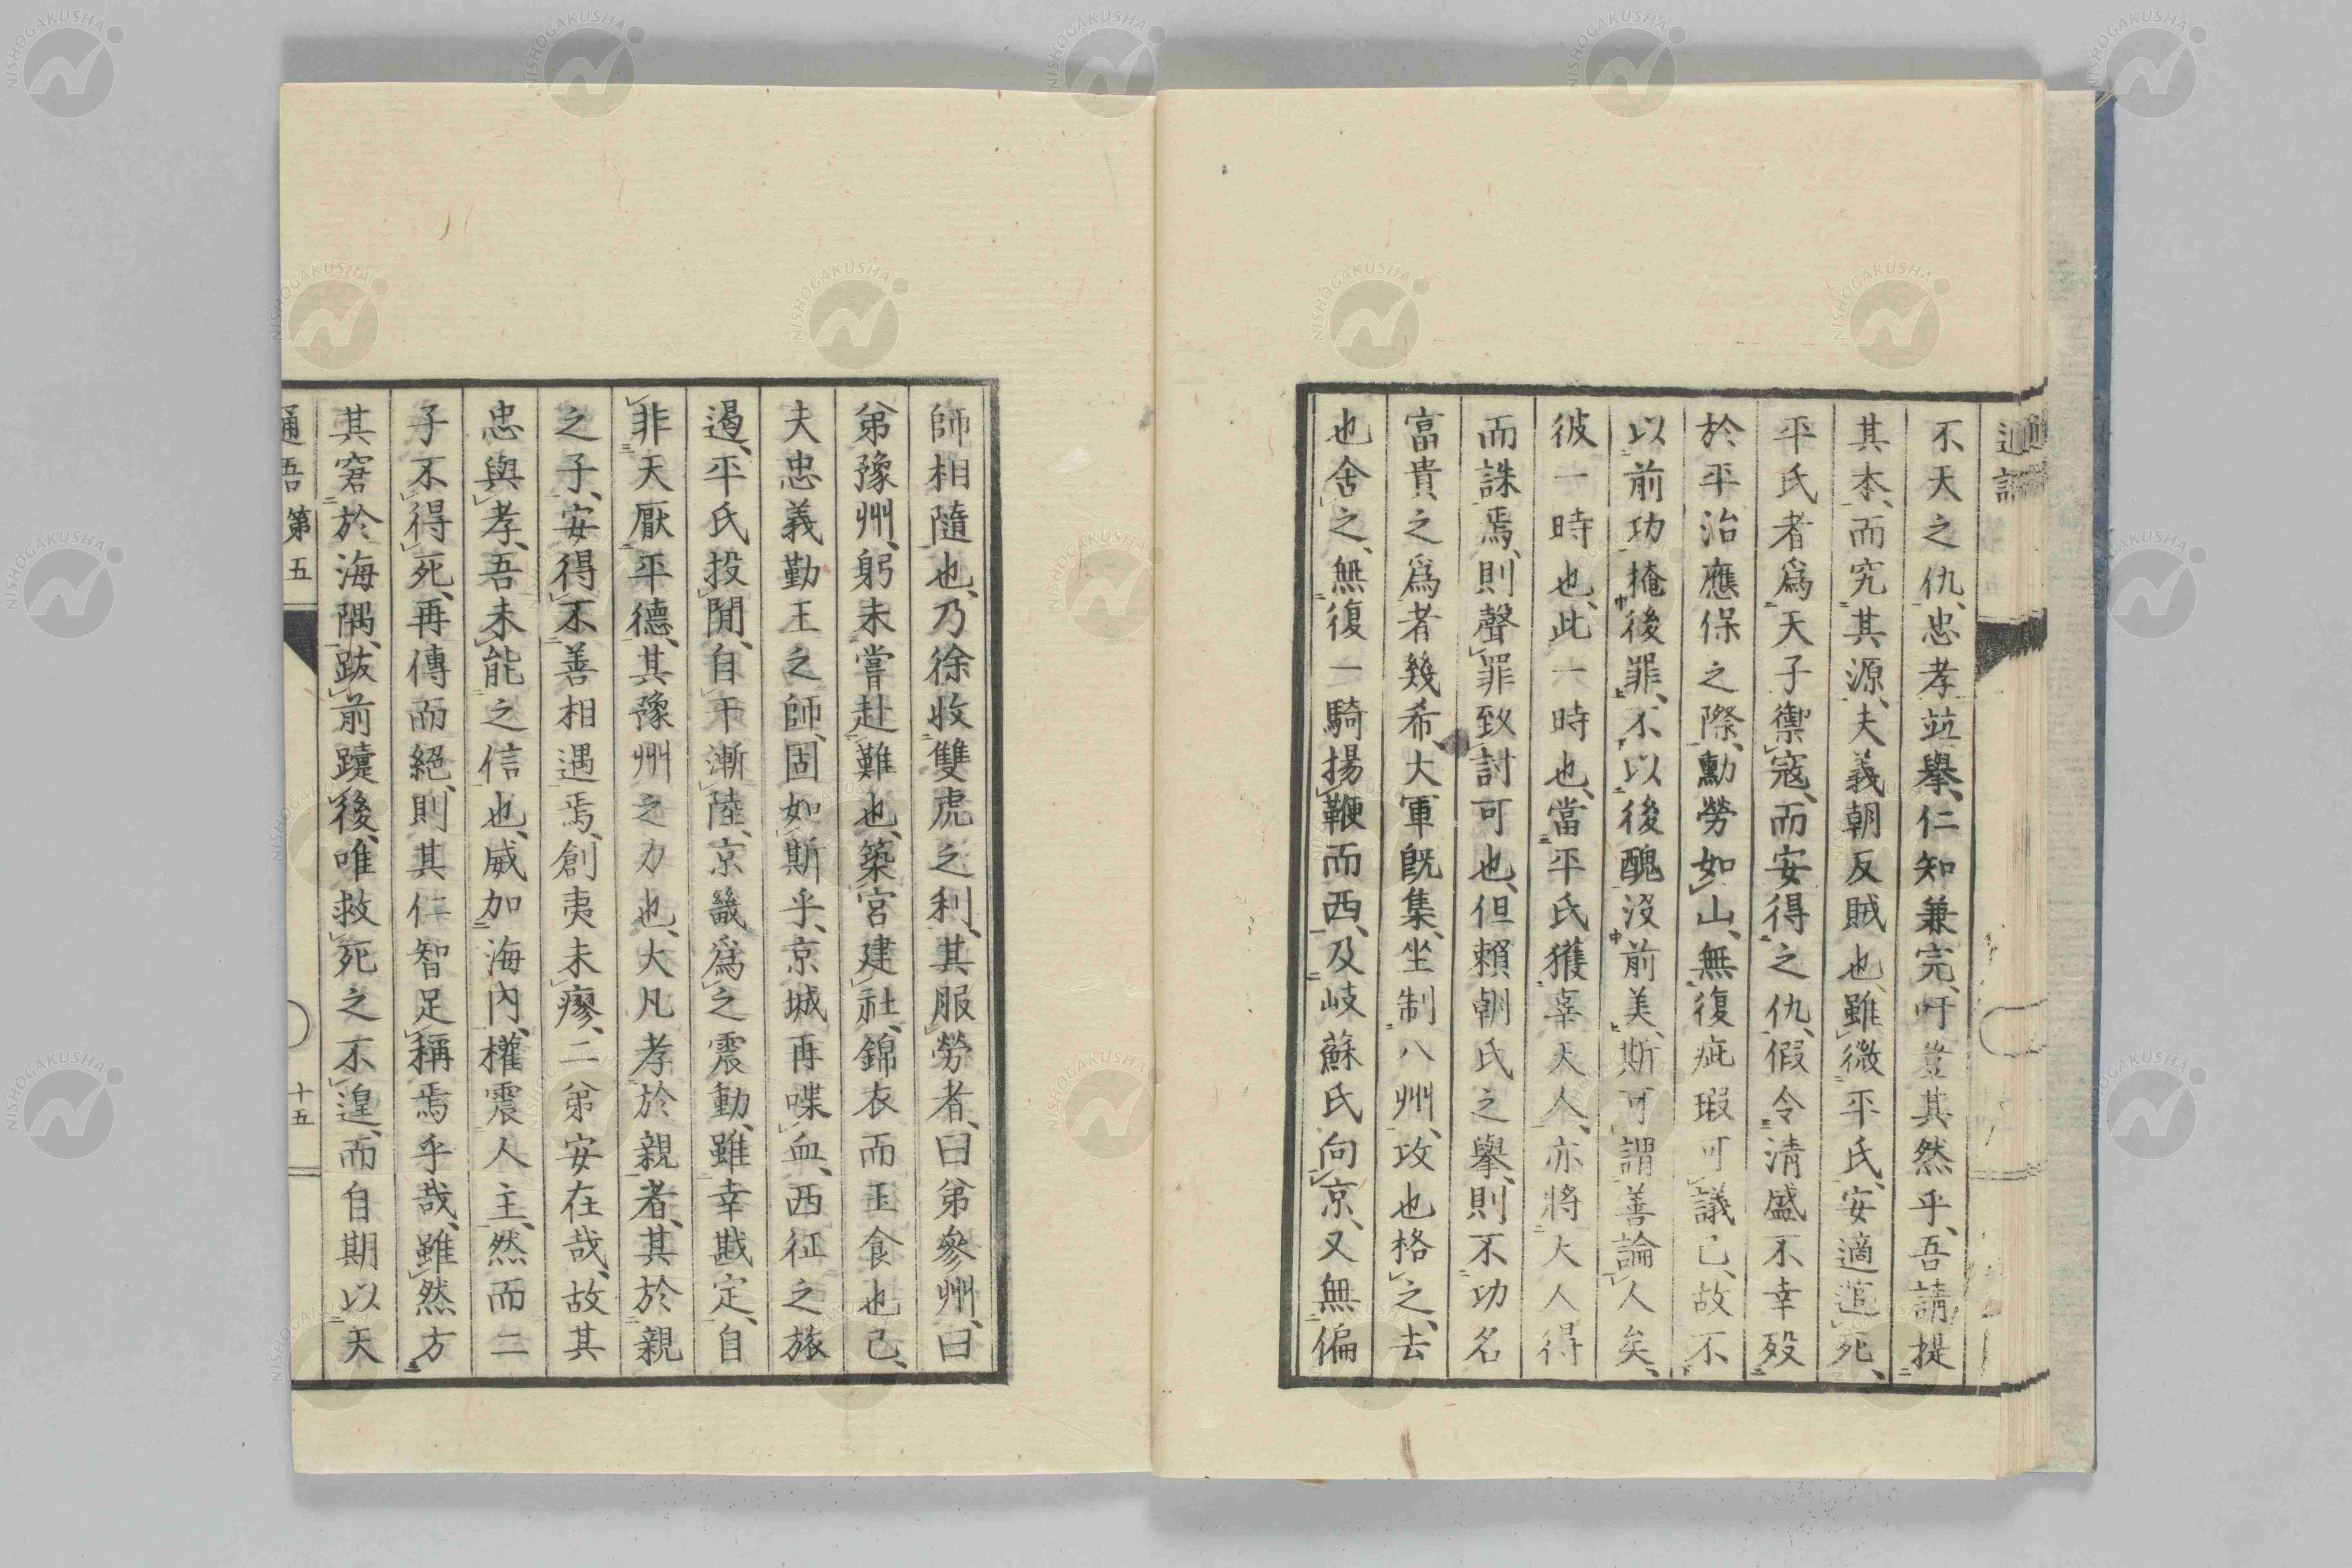 不天之仇、忠孝竝擧、仁知兼完、吁豈其然乎、吾請提
其本、而究其源、夫義朝反賊也、雖微平氏、安適逭死、
平氏者爲天子禦寇、而安得之仇、假令淸盛不幸歿
於平治應保之際、勳勞如山、無復疵瑕可議已、故不
以前功掩後罪、不以後醜沒前美、斯可謂善論人矣、
彼一時也、此一時也、當平氏獲辜天人、亦將大人得
而誅焉、則聲罪致討可也、但賴朝氏之擧、則不功名
富貴之爲者幾希、大軍旣集、坐制八州、攻也格之、去
也舍之、無復一騎揚鞭而西、及岐蘇氏向京、又無偏
師相隨也、乃徐收雙虎之利、其服勞者、曰弟參州、曰
弟豫州、躬未嘗赴難也、築宮建社、錦衣而玉食也已、
夫忠義勤王之師、固如斯乎、京城再喋血、西征之旅
遏、平氏投間、自干漸陸、京畿爲之震動、雖幸戡定、自
非天厭平德、其豫州之力也、大凡孝於親者、其於親
之子、安得不善相遇焉、創夷未瘳、二弟安在哉、故其
忠與孝、吾未能之信也、威加海內、權震人主、然而二
子不得死、再傳而絕、則其仁智足稱焉乎哉、雖然方
其窘於海隅、跋前躓後、唯救死之不遑、而自期以天
通語第五
十五